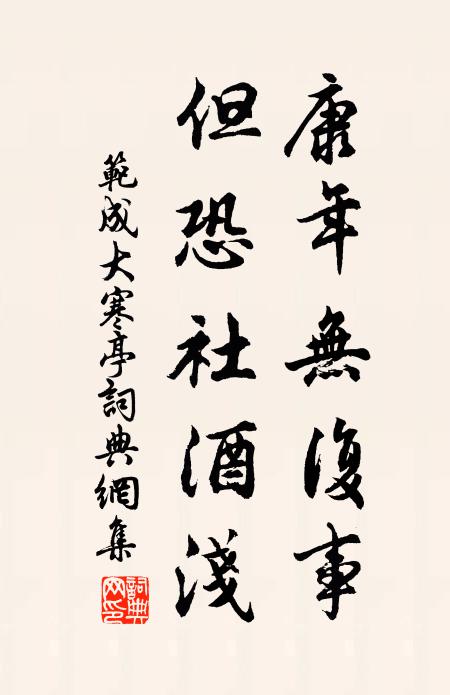 康年無復事
但恐社酒淺
範成大寒亭詞典網集
詞典网印